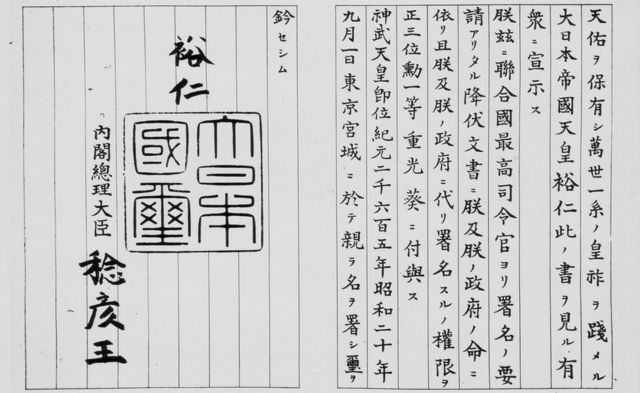 天佑ヲ保有シ萬世一系ノ皇祚ヲ踐メル
大日本帝國天皇裕仁此ノ書ヲ見ル有
衆ニ宣示ス
朕玆ニ聯合國最高司令官ヨリ署名ノ要
請アリタル降伏文書ニ朕及朕ノ政府ノ命ニ
依リ且朕及朕ノ政府ニ代リ署名スルノ權限ヲ
正三位勳一等重光葵ニ付與ス
神武天皇卽位紀元二千六百五年昭和二十年
九月一日東京宮城ニ於テ親ラ名ヲ署シ璽ヲ
鈐セシム
裕仁
大日本
國璽
內閣總理大臣
稔彦王